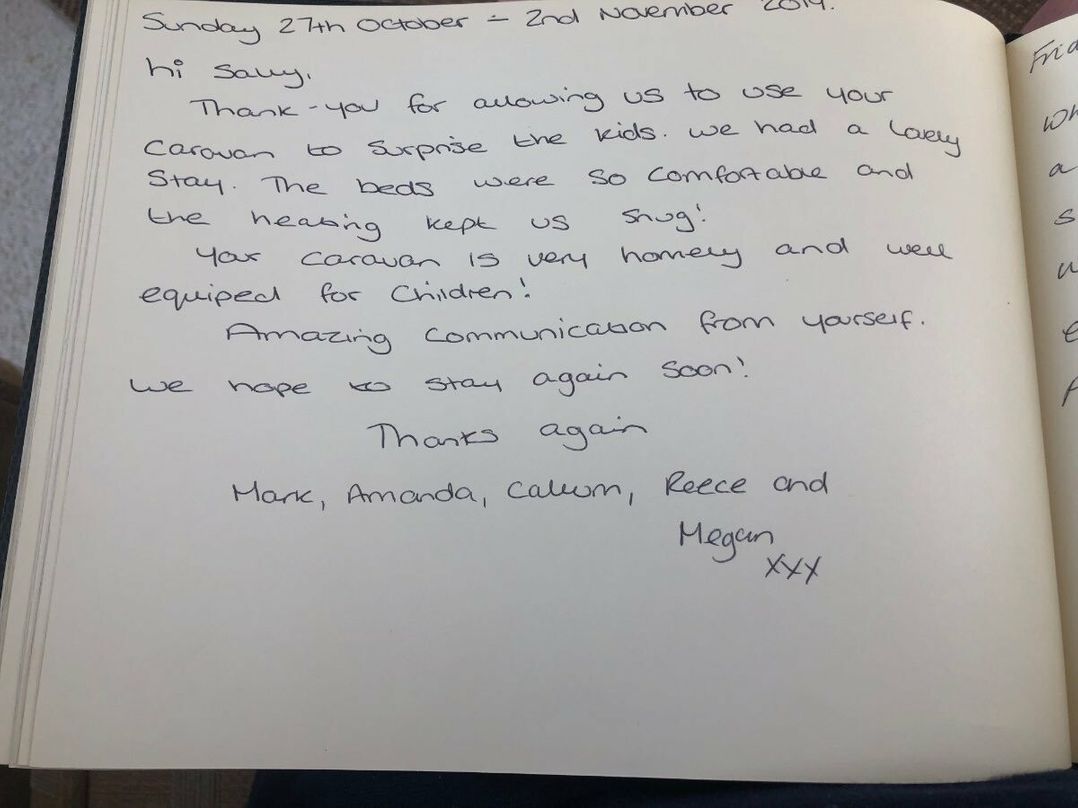 Sunday 27th October - 2nd November 2019.
hi Sally,
Thank-you for allowing us to use your
caravan to surprise the kids. we had a lovely
Stay. The beds were so comfortable and
the heating kept us snug!
Your caravan is very homely and well
equiped for Children!
Amazing communication from yourself.
we hope to stay again soon!
Thanks again
Mark, Amanda, Callum, Reece and
Megan
xxx
Frid
Wh
a
s